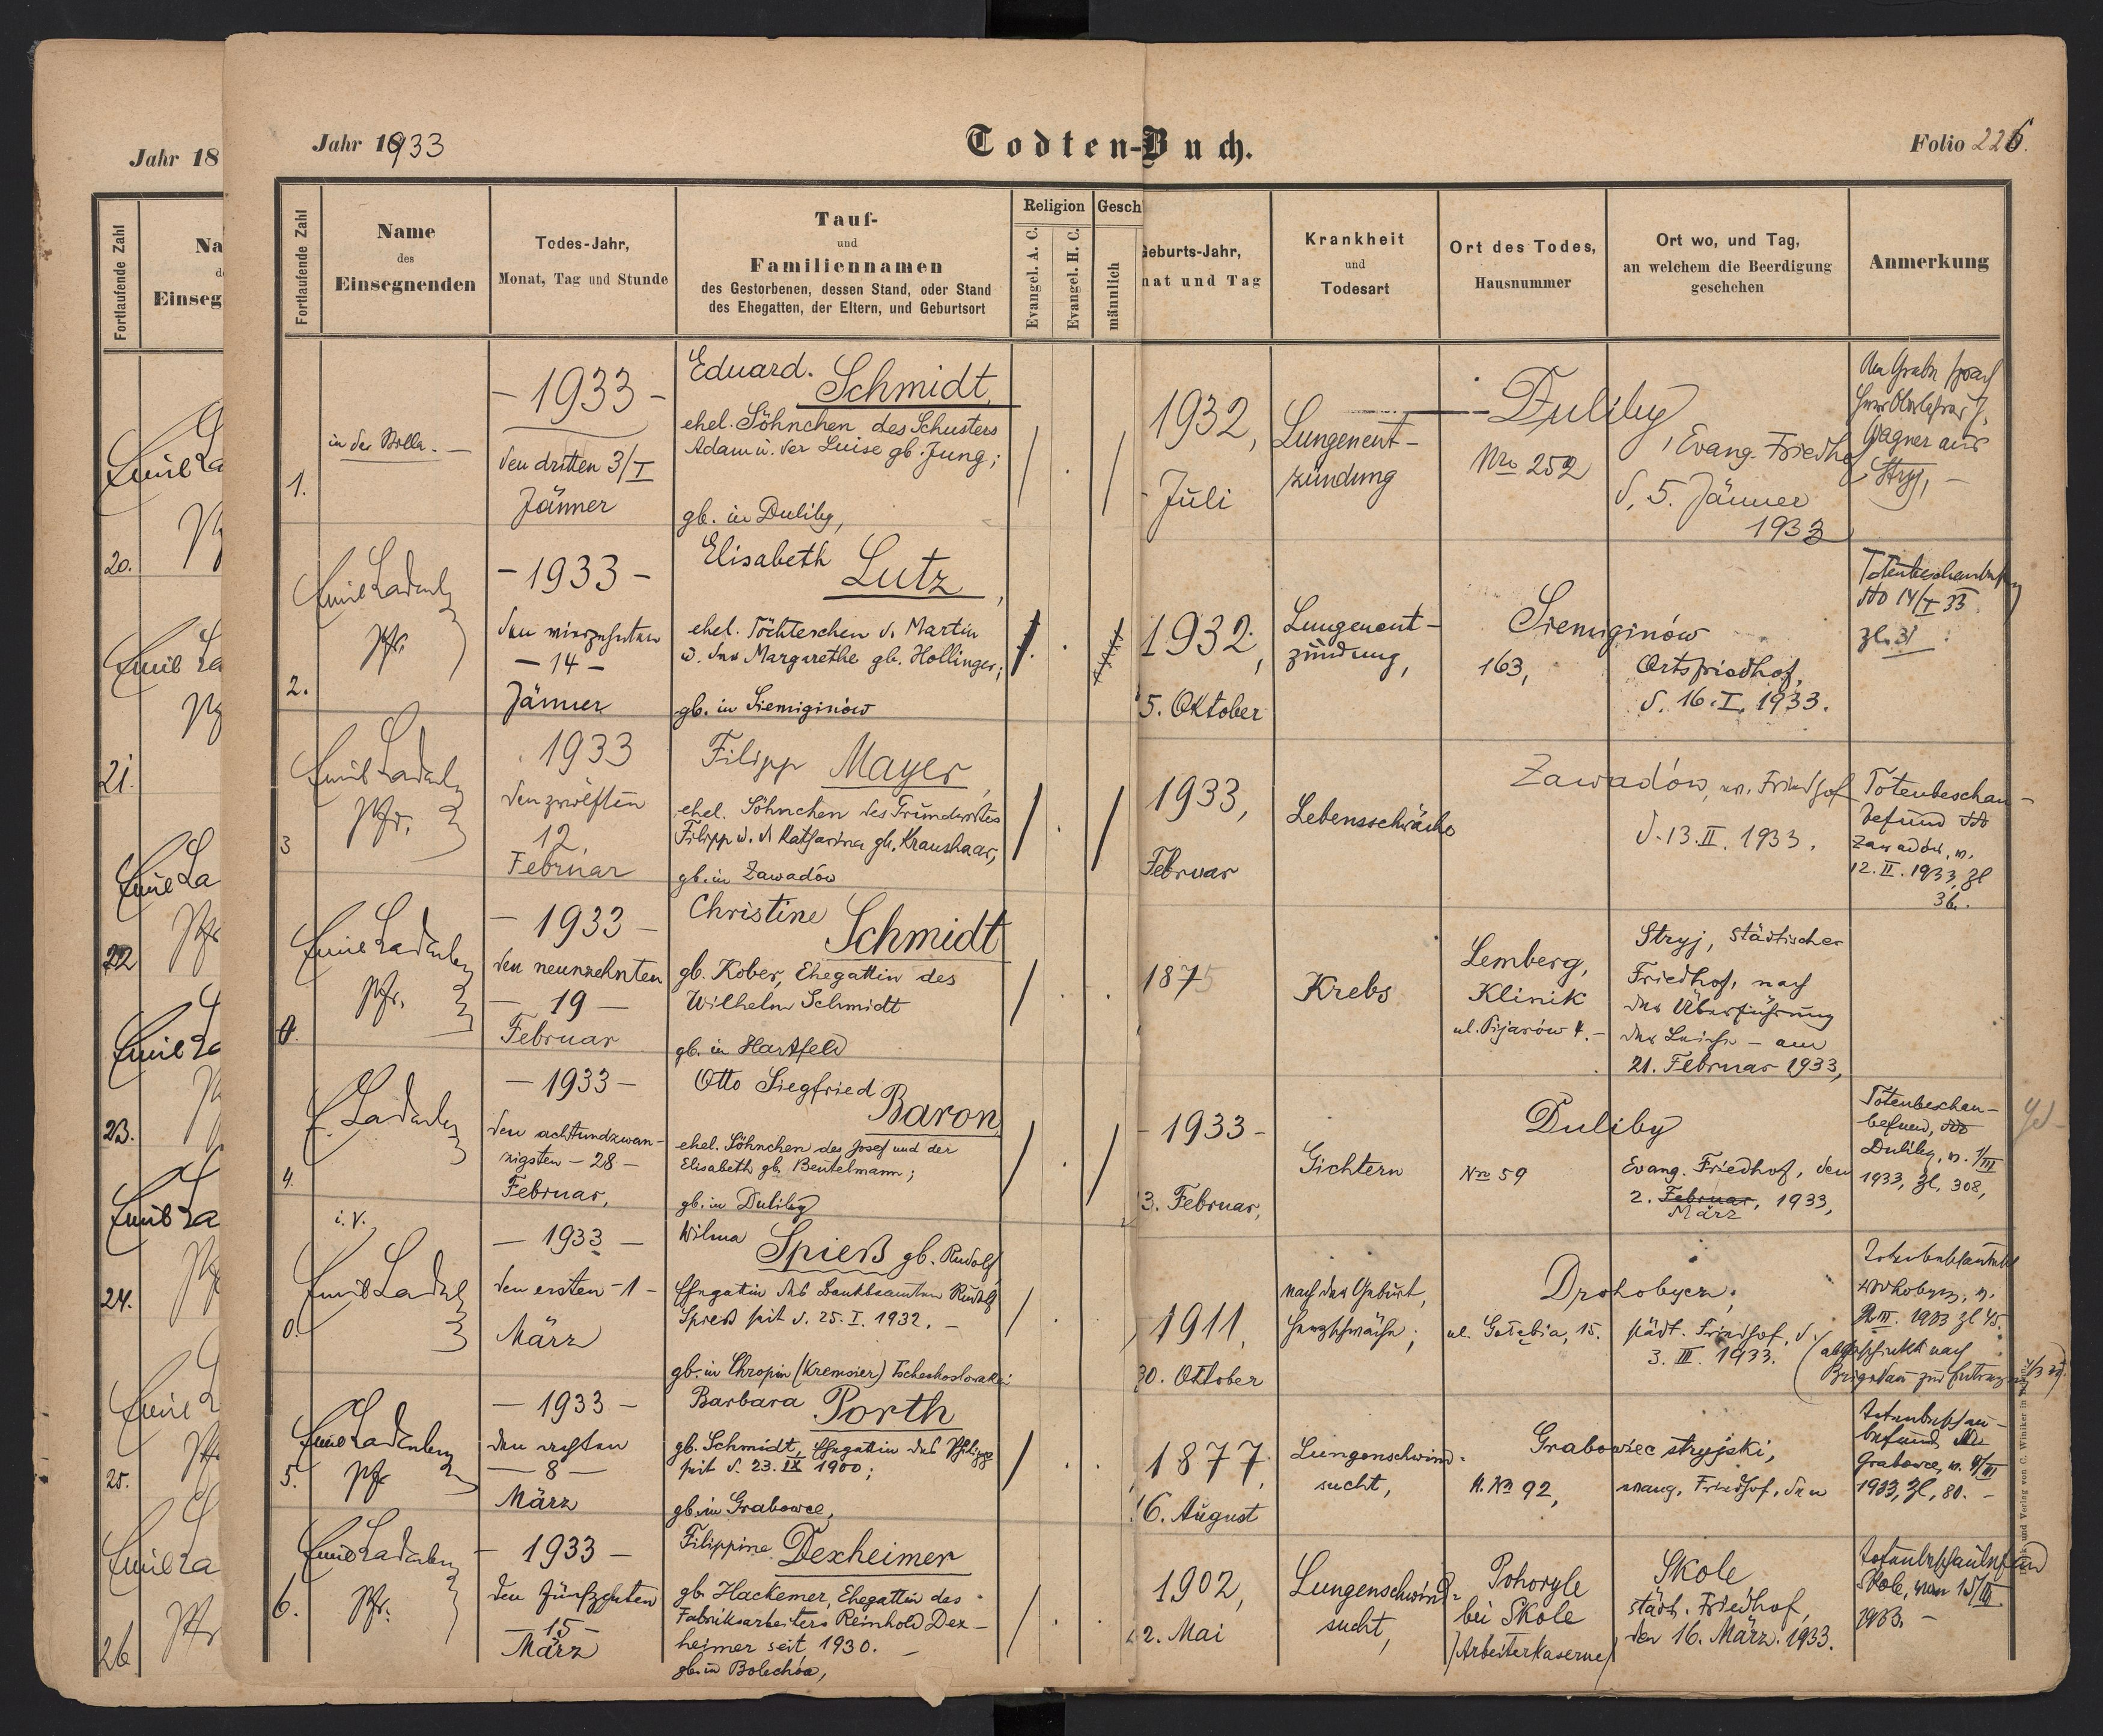 Jahr 18
Fortlaufende Zahl
Na
Einseg
20.
21.
22
23.
24.
25.
26
Jahr 1933
Todten-Buch.
Folio 226.
Fortlaufende Zahl
Name
des
Einsegnenden
Todes-Jahr,
Monat, Tag und Stunde
Tauf-
und
Familiennamen
des Gestorbenen, dessen Stand, oder Stand
des Ehegatten, der Eltern, und Geburtsort
Religion
Evangel. A. C.
Evangel. H. C.
Gesch
männlich
Geburts-Jahr,
nat und Tag
Krankheit
und
Todesart
Ort des Todes,
Hausnummer
Ort wo, und Tag,
an welchem die Beerdigung
geschehen
Anmerkung
1.
in der
- 1933 -
den dritten 3/I
Jänner
Eduard.
Schmidt,
ehel. Söhnchen des Schusters
Adam u. der Luise gb. Jung;
gb. in Duliby,
1932,
Juli
Lungenent-
zündung
Duliby
Nro 252
Evang. Friedhof
d. 5. Jänner
1933
Wagner aus
Stryj, -
2.
Pfr.
- 1933 -
den vierzehnten
- 14 -
Jänner
Elisabeth
Lutz,
ehel. Töchterchen d. Martin
u. der Margarethe gb. Hollinger;
gb. in Siemiginów
1932,
5. Oktober
Lungenent-
zündung,
Siemiginów
163,
Ortsfriedhof,
d. 16. I. 1933.
Totenbeschaubefund
dto 14/I 33.
zl. 31
3
Emil Ladenberger
Pfr.
1933
den zwölften
12.
Februar
Filipp Mayer,
ehel. Söhnchen des Grundwirtes
Filipp u. d. Katharina gb. Kraushaar,
gb. in Zawadów
1933,
Februar
Lebensschwäche
Zawadów, ev. Friedhof
d. 13. II. 1933.
Totenbeschau-
befund dto
Zawadów, v.
12. II. 1933, zl
36.
0.
Pfr.
- 1933 -
den neunzehnten
- 19 -
Februar
Christine
Schmidt
gb. Kober, Ehegattin des
Wilhelm Schmidt
gb. in Hartfeld
1875
Krebs
Lemberg,
Klinik
ul. Pijarów 4. -
Stryj, städtischer
Friedhof, nach
der Überführung
der Leiche - am
21. Februar 1933,
4.
- 1933 -
den achtundzwan-
zigsten - 28 -
Februar,
Otto Siegfried
Baron
ehel. Söhnchen des Josef und der
Elisabeth gb. Beutelmann;
gb. in Duliby
- 1933 -
3. Februar,
Gichtern
Duliby
Nro 59
Evang. Friedhof, den
2. Februar, 1933,
März
Totenbeschau-
befund, dto
Duliby, v. 1/III
1933, zl, 308,
0.
i. V.
- 1933 -
den ersten - 1 -
März
Wilma
Spieß gb. Rudolf
Ehegattin des Bankbeamten Rudolf
Spieß seit d. 25. I. 1932. -
gb. in Chropin (Kremsier) Tschechoslowakei
1911,
30. Oktober
nach der Geburt,
Herzschwäche;
Drohobycz;
ul. Gołębia, 15.
städt. Friedhof, d.
3. III. 1933.
1933 zl 45.
5.
Pfr
- 1933 -
den achten
- 8 -
März
Barbara
Porth
gb. Schmidt, Ehegattin des Philipp
seit d. 23. IX 1900;
gb. in Grabowce,
1877,
6. August
Lungenschwind-
sucht,
Grabowiec stryjski,
K. No 92,
evang. Friedhof, den
Totenbeschau-
befund dto
Grabowce, v. 9/III
1933, zl, 80. -
6.
Pfr.
- 1933 -
den fünfzehnten
- 15 -
März
Filippine
Dexheimer
gb. Hackemer, Ehegattin des
Fabriksarbeiters Reinhold Dex-
heimer seit 1930. -
gb. in Bolechów,
1902,
2. Mai
Lungenschwind-
sucht,
Pohoryle
bei Skole
/Arbeiterkaserne/
Skole
städt. Friedhof,
den 16. März. 1933.
Totenbeschaubefund
Skole, vom 15/III
1933. -
und Verlag von C. Winiker in